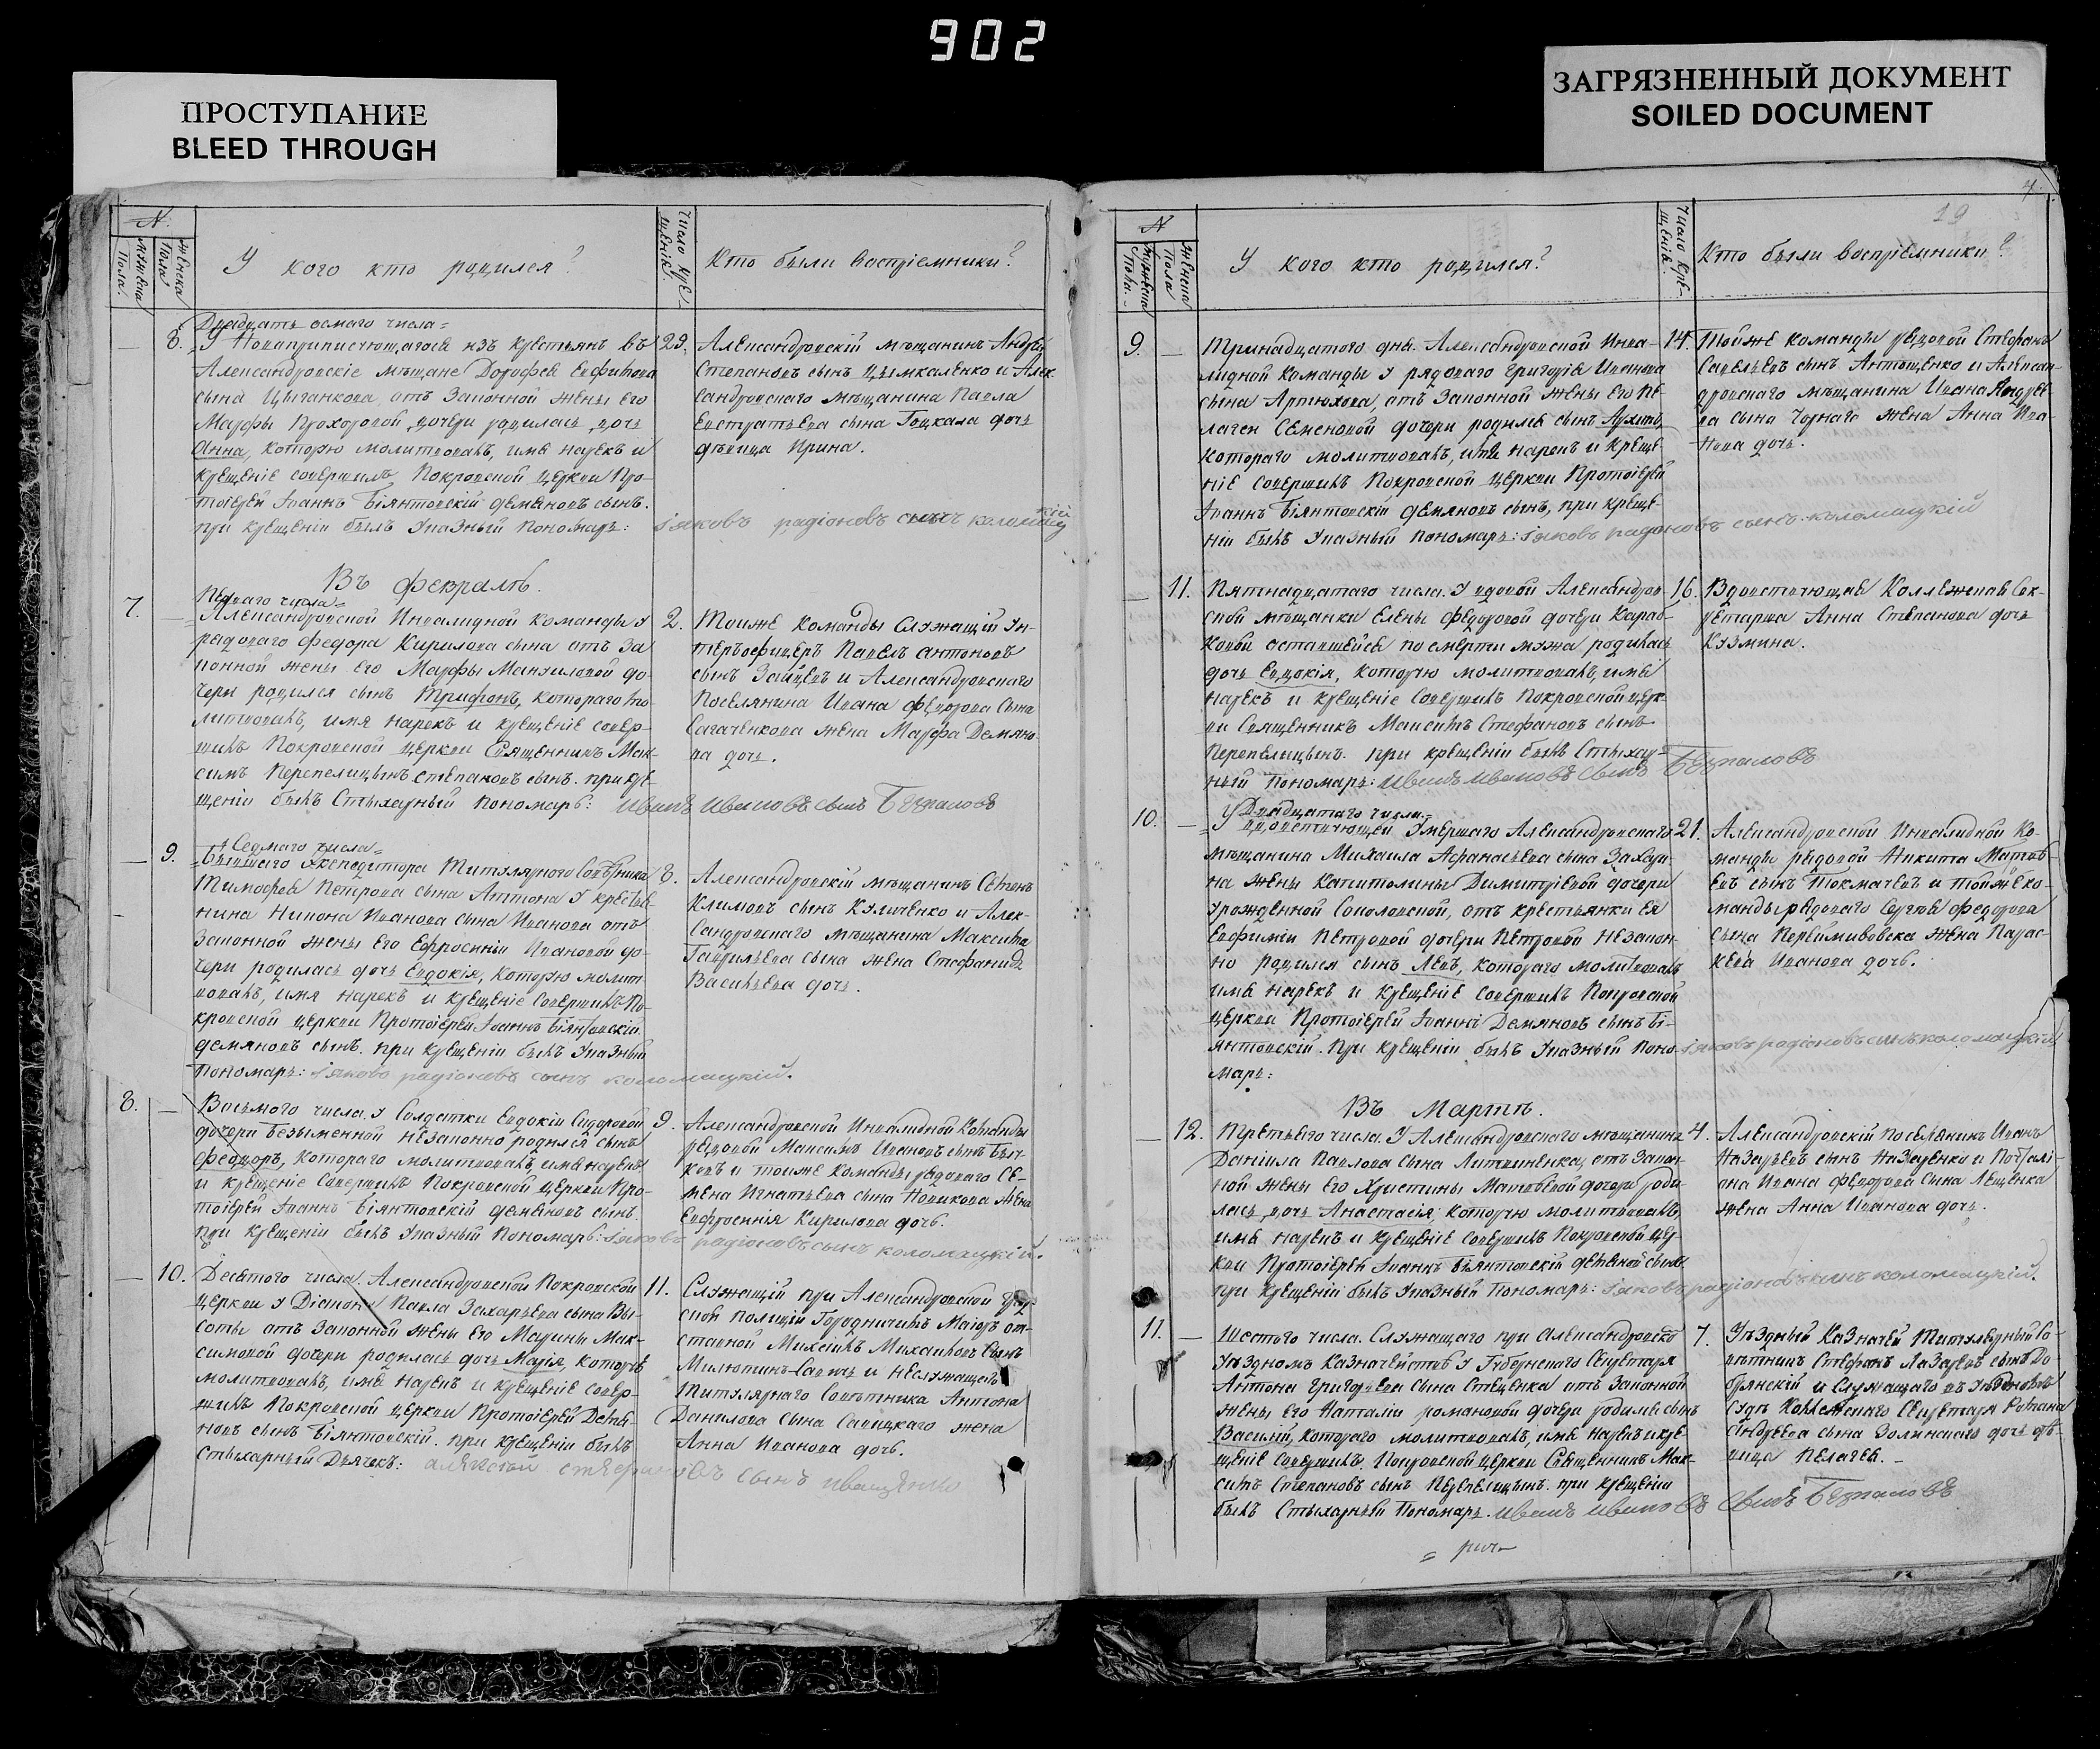 902
ПРОСТУПАНИЕ
BLEED THROUGH
ЗАГРЯЗНЕННЫЙ ДОКУМЕНТ
SOILED DOCUMENT
N.
Мужеска Пола.
Женска Пола
У кого кто родился?
Число Крещеній.
Кто были воспріемники?
8.
Двадцать осмаго числа=
У Новоприписующагося изъ крестьянъ въ
Александровскіе мѣщане Дорофея Евфимова
сына Цыганкова, отъ Законной жены его
Марфы Прохоровой дочери родилась дочь
Анна, которую молитвовалъ, имя нарекъ и
крещеніе совершилъ Покровской церкви Про-
тоіерей Іоаннъ Біянтовскій демяновъ сынъ.
при крещеніи былъ Указный Пономарь: іяковъ радіоновъ сынъ коломацкій
29.
Александровскій мѣщанинъ Андрей
Степановъ сынъ Цымкаленко и Алек-
сандровскаго мѣщанина Павла
Евстратьева сына Гоцкала дочь
дѣвица Ирина.
Въ февралѣ.
7.
Перваго числа=
Александровской Инвалидной Команды у
рядоваго Федора Кирилова сына отъ За
конной жены его Марфы Мануиловой до-
чери родился сынъ Трифонъ, котораго мо-
литвовалъ, имя нарекъ и крещеніе совер-
шилъ Покровской церкви Священникъ Мак-
симъ Перепелицынъ Степановъ сынъ. при кре-
щеніи былъ Стыхарный Пономарь: иванъ ивановъ сынъ Безпаловъ
2.
Тоиже Команды Служащій Ун-
теръофицеръ Павелъ Антоновъ
сынъ Зайцевъ и Александровскаго
Поселянина Ивана Федорова сына
Сагаченкова жена Марфа Демяно-
ва дочь.
9.
Седмаго числа=
Бывшаго Экспедитора Титулярного Совѣтника
Тимофея Петрова сына Аптона у крестья-
нина Никона Иванова сына Иванова отъ
Законной жены его Ефросиніи Ивановой до-
чери родилась дочь Евдокія, которую молит
вовалъ, имя нарекъ и крещеніе совершилъ По-
кровской церкви Протоіерей Іоаннъ Біянтовскій
демяновъ сынъ. при крещеніи былъ Указный
Пономарь: іяковъ радіоновъ сынъ коломацкій.
8.
Александровскій мѣщанинъ Семенъ
Климовъ сынъ Куличенко и Алек-
сандровскаго мѣщанина Максима
Гаврильева сына жена Стефанида
Васильева дочь.
8.
Восьмого числа. у Солдатки Евдокіи Сидоровой
дочери Безыменной незаконно родился сынъ
Феодоръ, котораго молитвовалъ, имя нарекъ
и крещеніе совершилъ Покровской церкви Про-
тоіерей Іоаннъ Біянтовскій демяновъ сынъ.
при крещеніи былъ Указный Пономарь: іяковъ радіоновъ сынъ коломацкій.
9.
Александровской Инвалидной Команды
рядовой Максимъ Ивановъ сынъ
и тоиже команды рядоваго Се-
мена Игнатьева сына Новикова жена
Евфросинія Кирилова дочь.
10.
Десятого числа. Александровской Покровской
церкви у Діакона Павла Захарьева сына Вы-
соты отъ Законной жены его Марины Мак-
симовой дочери родилась дочь Марія, которую
молитвовалъ, имя нарекъ и крещеніе совер-
шилъ Покровской церкви Протоіерей Демья-
новъ сынъ Біянтовскій. при крещеніи былъ
Стыхарный Дьячекъ: алексѣй стефановъ сынъ иващенко
11.
Служащій при Александровской Град-
ской Полиціи Городничимъ Маіоръ от-
ставной Михаилъ Михаиловъ сынъ
Милютинъ и неслужащаго
Титулярнаго Совѣтника Антона
Данилова сына Савицкаго жена
Анна Иванова дочь.
7.
19
N
Мужеска Пола.
Женска Пола
У кого кто родился?
Число Крещеній.
Кто были воспріемники?
9.
Тринадцатого дня. Александровской Инва-
лидной Команды у рядоваго Григорія Иванова
сына Артюхова, отъ Законной жены его Пе-
лагеи Семеновой дочери родился сынъ Архипъ,
котораго молитвовалъ, имя нарекъ и креще-
ніе совершилъ Покровской церкви Протоіерей
Іоаннъ Біянтовскій демяновъ сынъ, при креще-
ніи былъ Указный Пономарь: іяковъ радіоновъ сынъ коломацкій
14.
Тойже Команды рядовой Стефанъ
Савельевъ сынъ Антощенко и Алексан-
дровскаго мѣщанина Ивана Андрее-
ва сына Чорнаго жена Анна Ива-
нова дочь.
11.
Пятнадцатаго числа. У вдовой Александров-
ской мѣщанки Елены Федоровой дочери Караб-
ковой оставшейся по смерти мужа родилась
дочь Евдокія, которую молитвовалъ, имя
нарекъ и крещеніе совершилъ Покровской церк-
ви Священникъ Максимъ Стефановъ сынъ
Перепелицынъ. при крещеніи былъ Стыхар-
ный Пономарь: иванъ ивановъ сынъ Безпаловъ
16.
Вдовствующая Коллежская Сек-
ретарша Анна Степанова дочь
Кузмина.
10.
Двадцатаго числа.
У вдовствующей умершаго Александровскаго
мѣщанина Михаила Афанасьева сына
жены Капитолины Димитріевой дочери
урожденной Соколовской, отъ крестьянки ея
Евфиміи Петровой дочери Петровой незакон-
но родился сынъ Левъ, котораго молитвовалъ
имя нарекъ и крещеніе совершилъ Покровской
церкви Протоіерей Іоаннъ Демяновъ сынъ Бі-
янтовскій. При крещеніи былъ Указный Поно-
марь: іяковъ радіоновъ сынъ коломацкій
21.
Александровской Инвалидной Ко-
манды рядовой Никита Матве-
евъ сынъ Токмачевъ и тойже ко-
манды рядоваго Сергея Федорова
сына жена Парас-
кева Иванова дочь.
Въ Мартѣ.
12.
Третьего числа. У Александровскаго мѣщанина
Даніила Павлова сына Литвиненка, отъ Закон-
ной жены его Христины Матвѣевой дочери роди-
лась дочь Анастасія, которую молитвовалъ,
имя нарекъ и крещеніе совершилъ Покровской цер-
кви Протоіерей Іоаннъ Біянтовскій демяновъ сынъ
при крещеніи былъ Указный Пономарь: іяковъ радіоновъ сынъ коломацкій.
4.
Александровскій поселянинъ Иванъ
Назарьевъ сынъ Назаренко и Почталі-
она Ивана Федорова сына Лещенка
жена Анна Иванова дочь.
11.
Шестого числа. Служащаго при Александровскомъ
Уѣздномъ Казначействѣ у Губернскаго Секретаря
Антона Григорьева сына Стеценка отъ Законной
жены его Наталіи Романовой дочери родился сынъ
Василій, котораго молитвовалъ, имя нарекъ и кре-
щеніе совершилъ Покровской церкви Священникъ Мак-
симъ Степановъ сынъ Перепелицынъ. при крещеніи
былъ Стыхарный Пономарь. иванъ ивановъ сынъ Безпаловъ
7.
Уѣздный Казначей Титулярный Со-
вѣтникъ Стефанъ Лазаревъ сынъ До-
брянскій и служащаго въ Уѣздномъ
Судѣ Коллежскаго Секретаря Романа
Андреева сына Волинскаго дочь дѣ-
вица Пелагея.